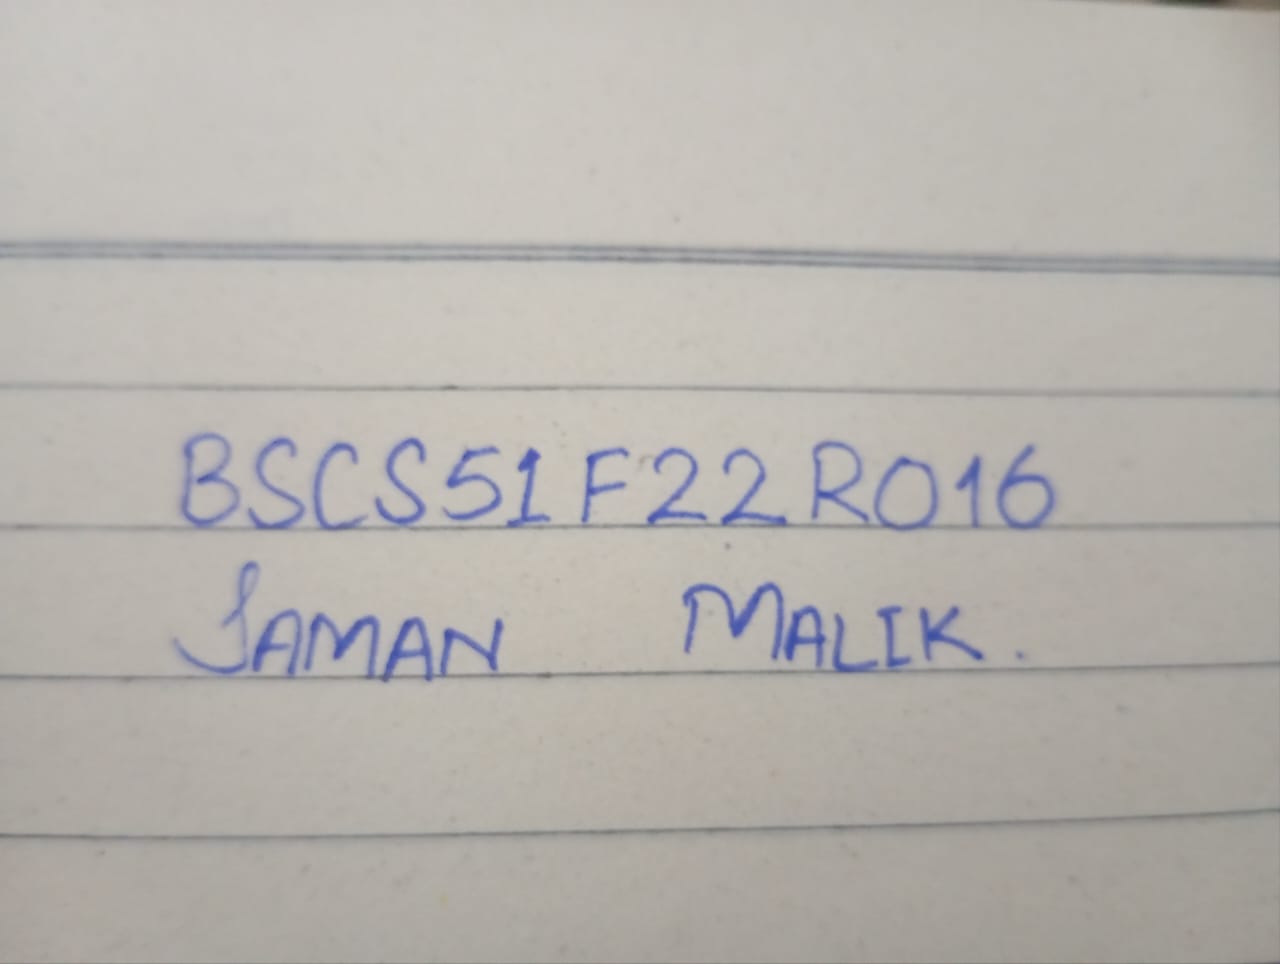 BSCS51F22R016
SAMAN MALIK.